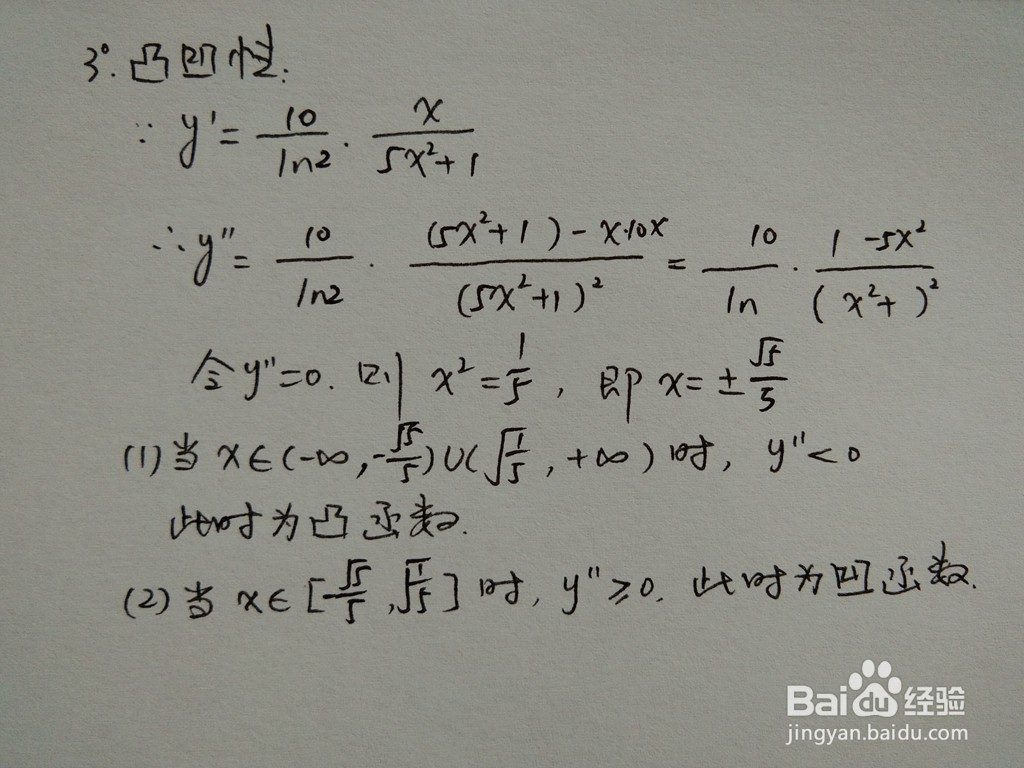 3°. 凸凹性:
∵ y' = 10/ln2 · x/(5x²+1)
∴ y'' = 10/ln2 · ((5x²+1)-x·10x)/(5x²+1)² = 10/ln · (1-5x²)/(x²+ )²
令y''=0. 则 x²=1/5, 即 x=±√5/5
(1)当 x∈(-∞,-√5/5)∪(√(1/5),+∞)时, y''<0
此时为凸函数.
(2)当 x∈[-√5/5,√(1/5)]时, y''≥0. 此时为凹函数.
Baidu经验
jingyan.baidu.com